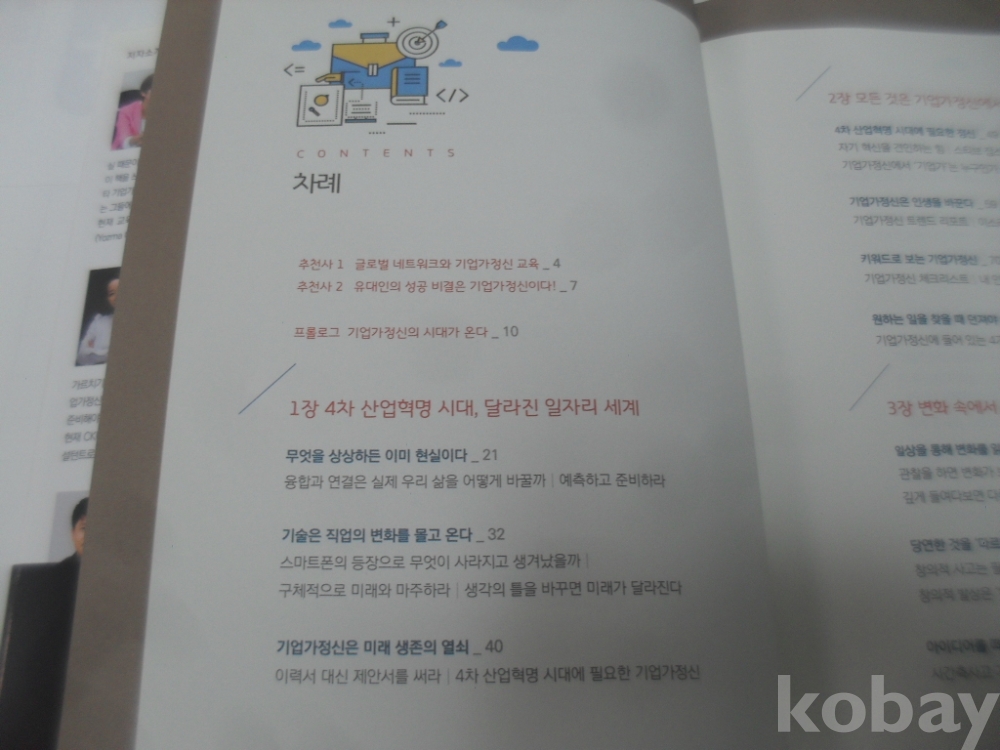 <=
</>
CONTENTS
차례
추천사 1 글로벌 네트워크와 기업가정신 교육 _ 4
추천사 2 유대인의 성공 비결은 기업가정신이다! _ 7
프롤로그 기업가정신의 시대가 온다 _ 10
1장 4차 산업혁명 시대, 달라진 일자리 세계
무엇을 상상하든 이미 현실이다 _ 21
융합과 연결은 실제 우리 삶을 어떻게 바꿀까 | 예측하고 준비하라
기술은 직업의 변화를 몰고 온다 _ 32
스마트폰의 등장으로 무엇이 사라지고 생겨났을까 |
구체적으로 미래와 마주하라 | 생각의 틀을 바꾸면 미래가 달라진다
기업가정신은 미래 생존의 열쇠 _ 40
이력서 대신 제안서를 써라 | 4차 산업혁명 시대에 필요한 기업가정신
2장 모든 것은 기업가정신에
4차 산업혁명 시대에 필요한 정신
자기 혁신을 견인하는 힘 | 스티브
기업가정신에서 '기업가'는
기업가정신은 인생을 바꾼다 _ 59
기업가정신 트렌드 리포트 |
키워드로 보는 기업가정신 _
기업가정신 체크리스트 | 내
원하는 일을 찾을 때 던져야
기업가정신에 들어 있는 4가
3장 변화 속에서
일상을 통해 변화를
관찰을 하면 변화가
깊게 들여다보면
당연한 것을
창의적 사고는
창의적 일상은
아이디어를
kobay